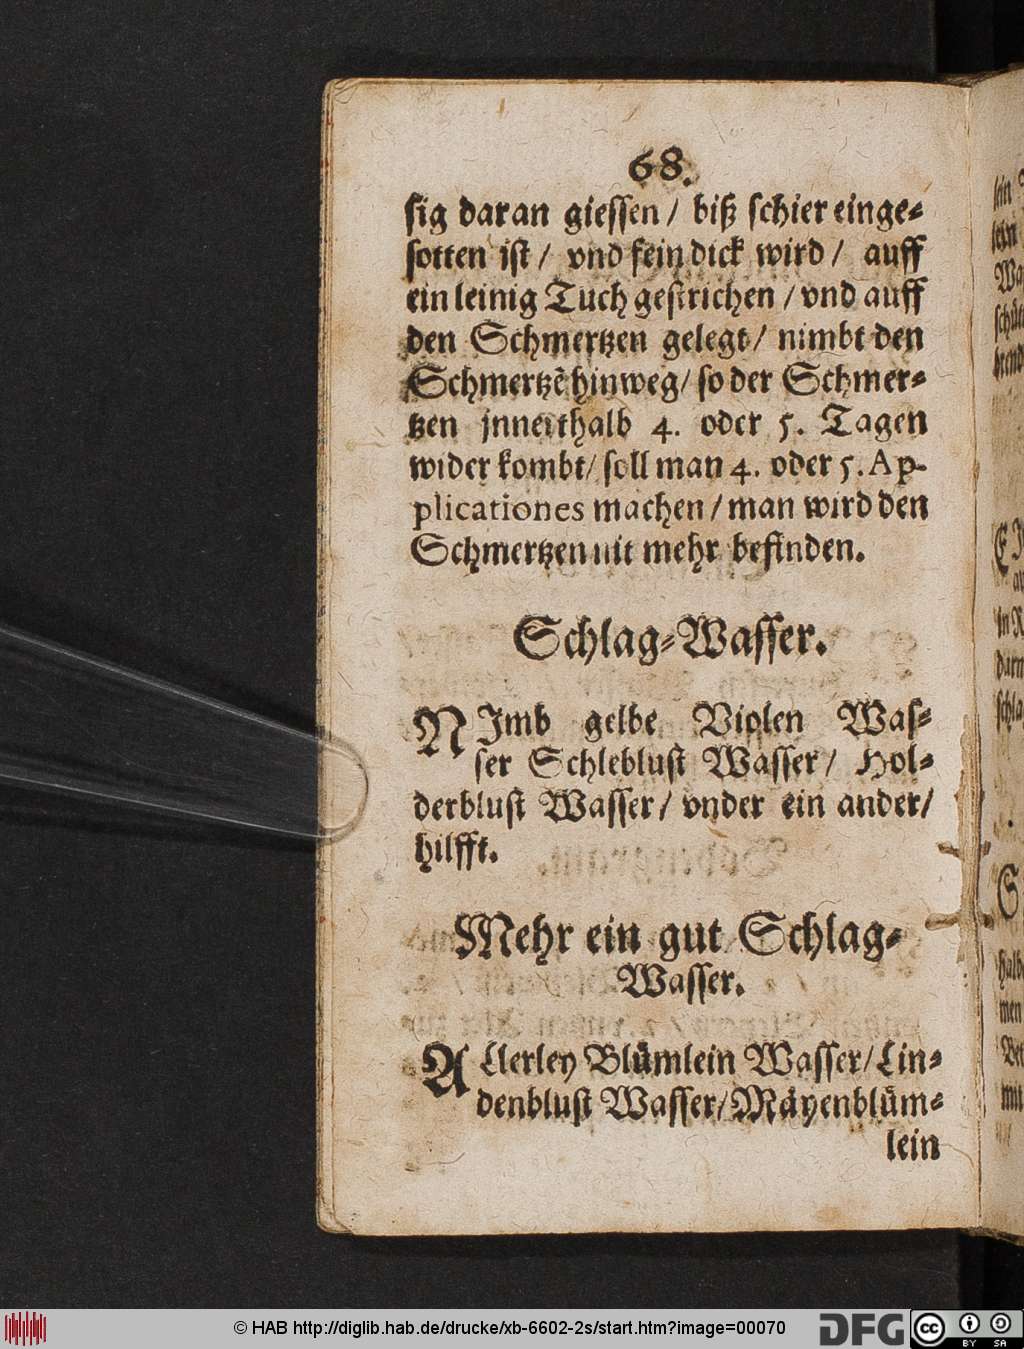 68.
sig daran giessen / biß schier einge-
sotten ist / vnd fein dick wird / auff
ein leinig Tuch gestrichen / vnd auff
den Schmertzen gelegt / nimbt den
Schmertzẽ hinweg / so der Schmer-
tzen jnnerthalb 4. oder 5. Tagen
wider kombt / soll man 4. oder 5. Ap-
plicationes machen / man wird den
Schmertzen nit mehr befinden.
Schlag-Wasser.
NImb gelbe Violen Was-
ser Schleblust Wasser / Hol-
derblust Wasser / vnder ein ander /
hilfft.
Mehr ein gut Schlag-
Wasser.
ALlerley Blümlein Wasser / Lin-
denblust Wasser / Mäyenblüm-
lein
© HAB http://diglib.hab.de/drucke/xb-6602-2s/start.htm?image=00070
DFG
cc
BY SA